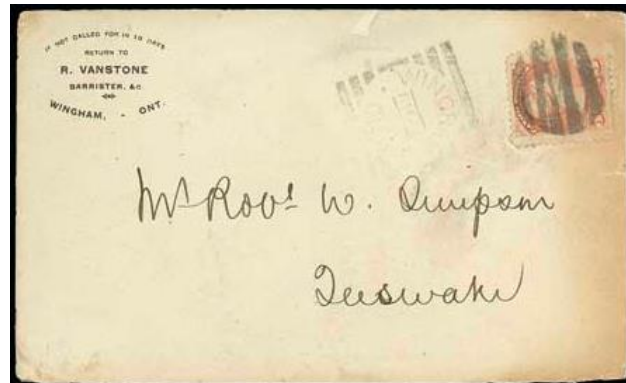 IF NOT CALLED FOR IN 10 DAYS
RETURN TO
R. VANSTONE
BARRISTER, &c
WINGHAM, - ONT.
Mr Robt W. Simpson
Teeswater